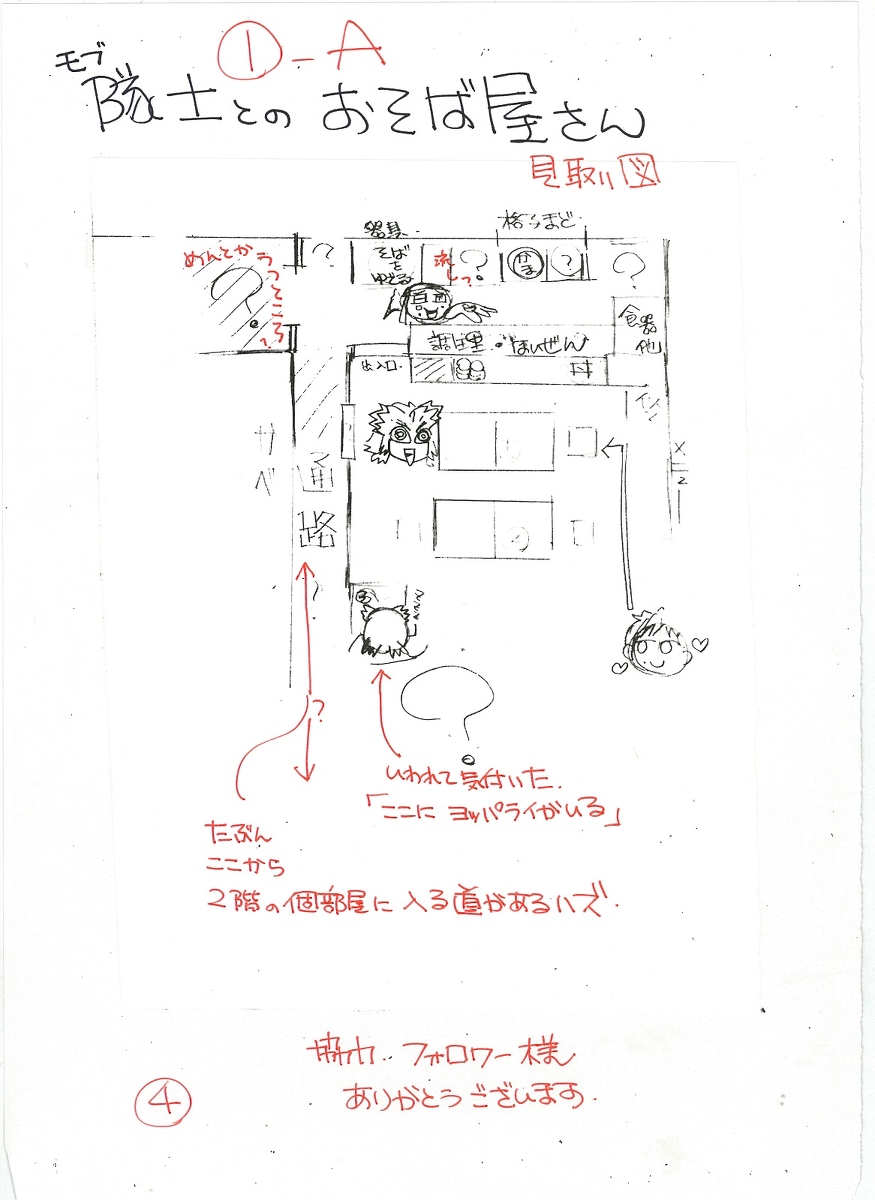 ①-A
モブ
隊士との おそば屋さん
見取り図
器具
格子まど
そば
を
ゆでる
流しっ?
?
かま
?
?
?
めんとか
うつところ?
?
店主
調理・はいぜん
食器
他
出入口
丼
イス
カベ
通
路
?
いわれて気付いた.
「ここに ヨッパライがいる」
?
?
たぶん
ここから
2階の個部屋に 入る道があるハズ.
協力.. フォロワー様
ありがとうございます.
④